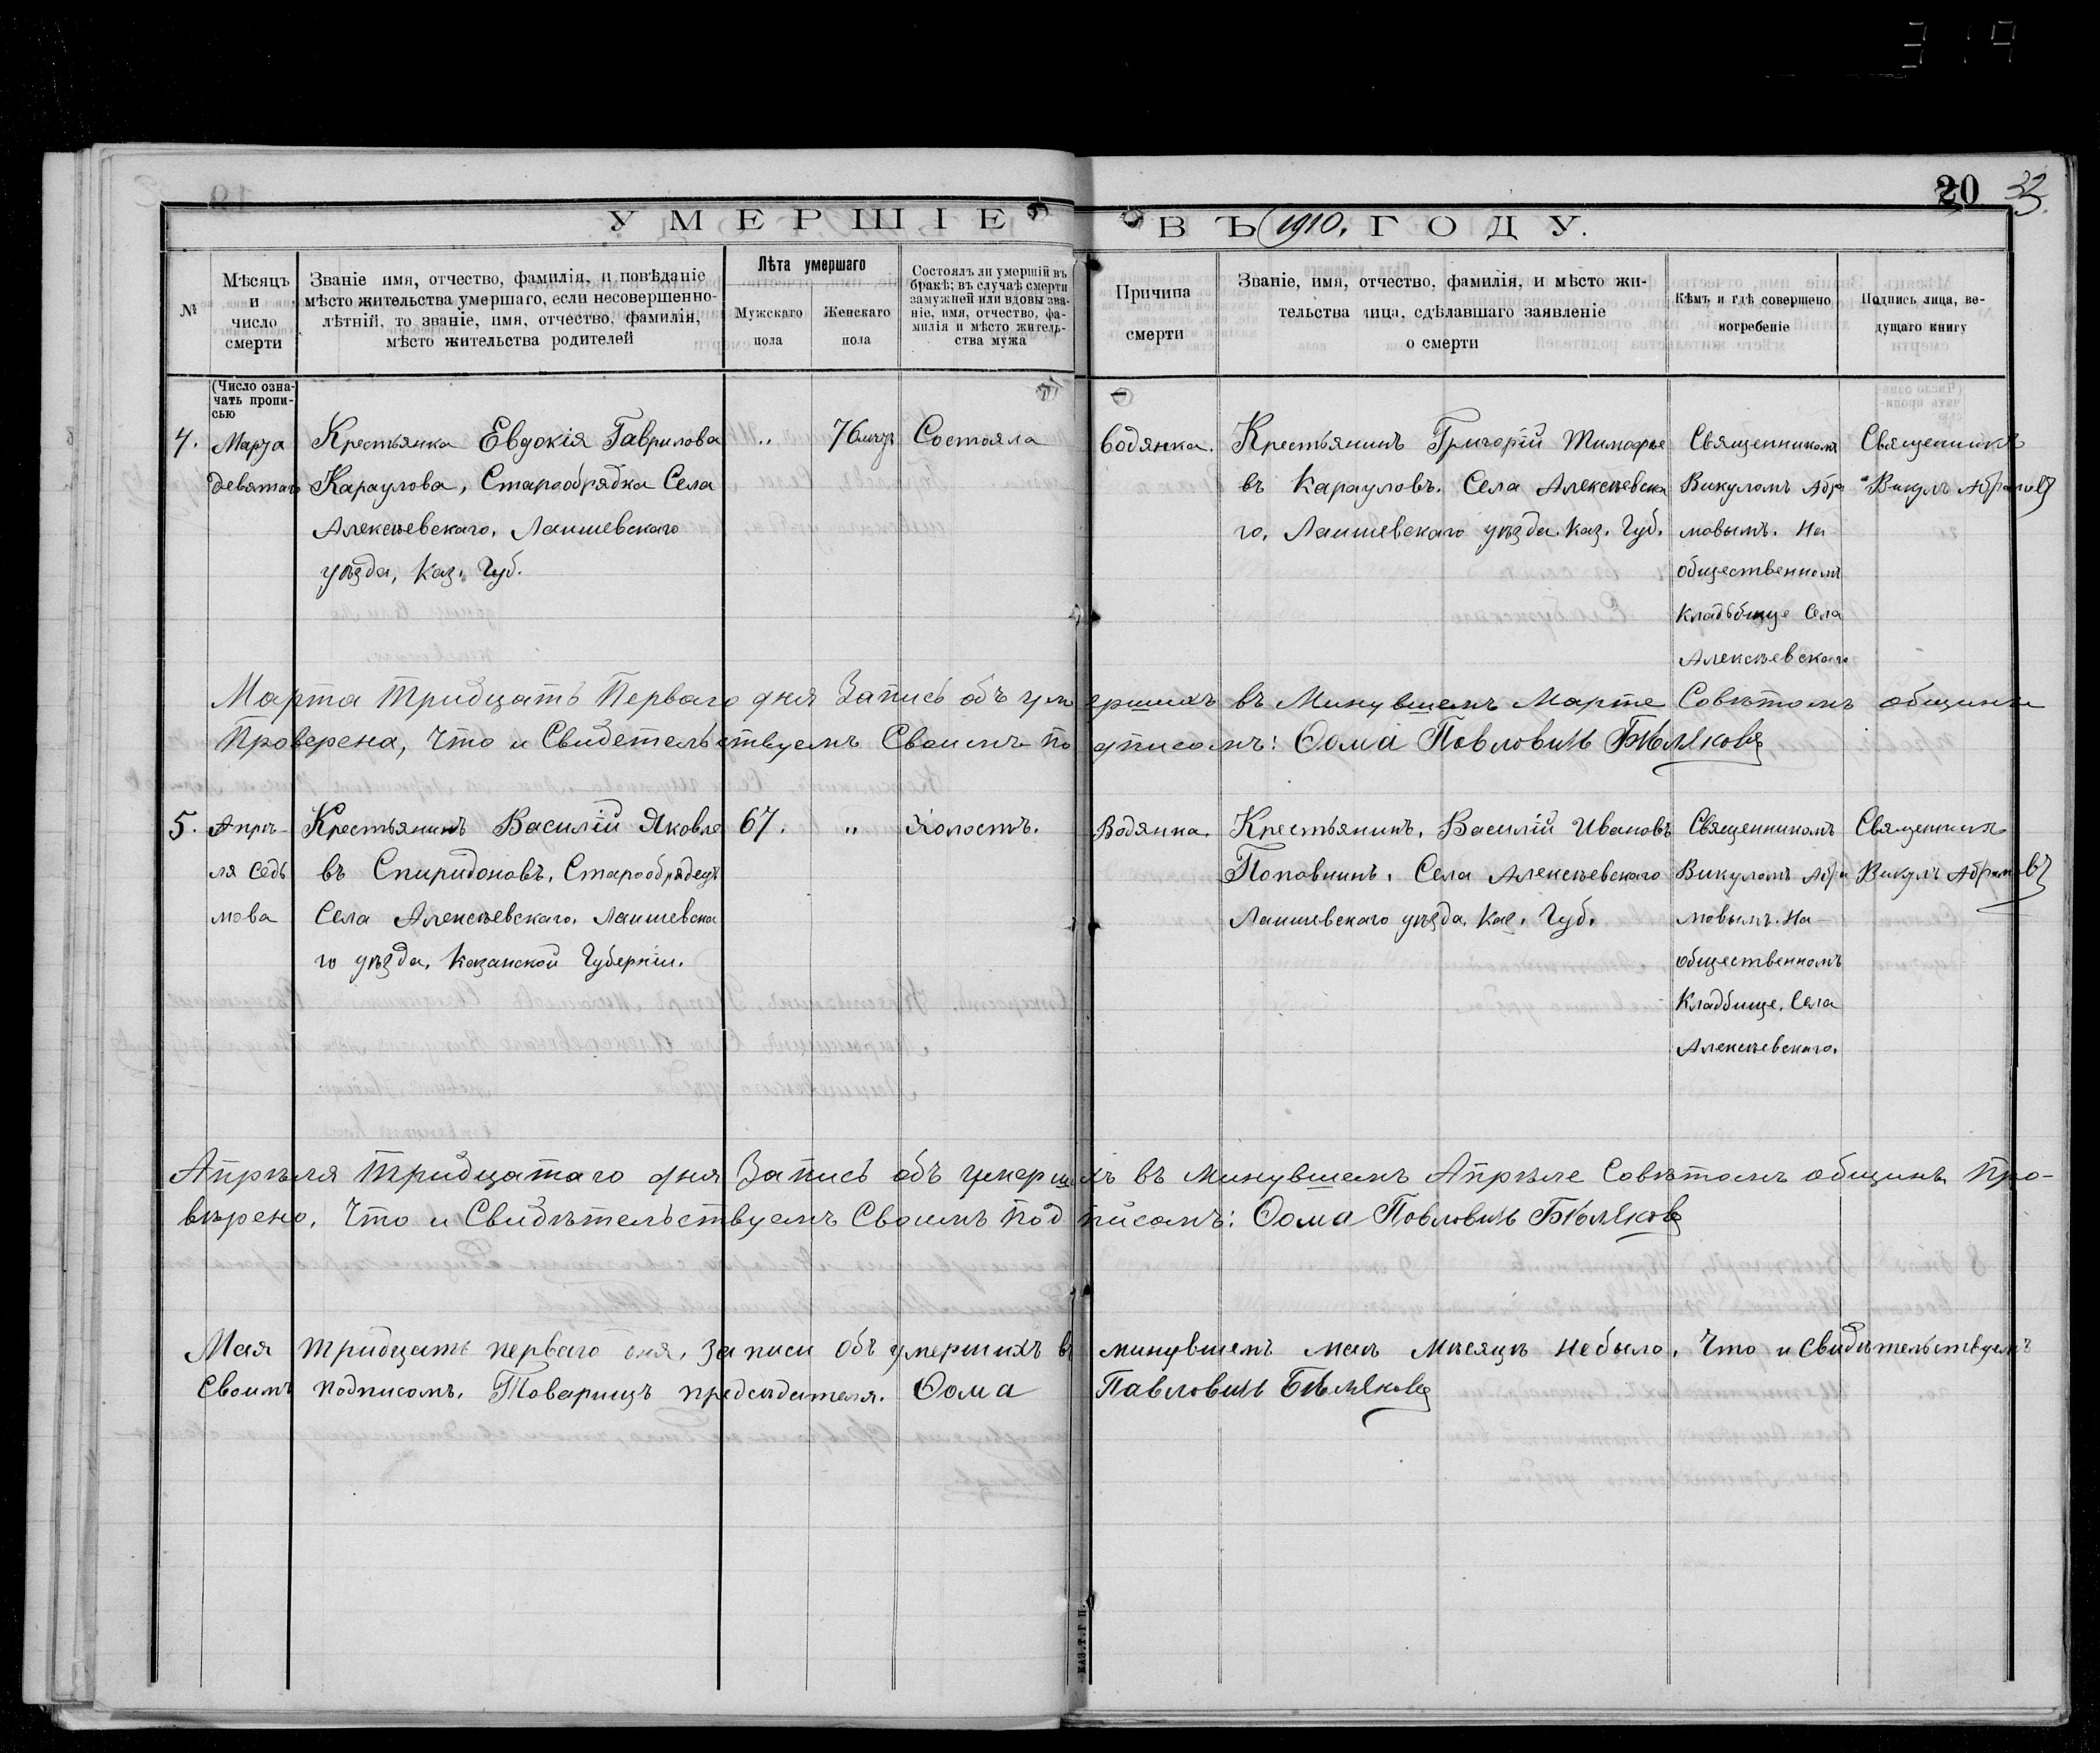 20 33.
УМЕРШІЕ ВЪ 1910. ГОДУ.
№
Мѣсяцъ и число смерти
Званіе имя, отчество, фамилія, и повѣданіе мѣсто жительства умершаго, если несовершеннолѣтній, то званіе, имя, отчество, фамилія, мѣсто жительства родителей
Лѣта умершаго
Мужскаго пола
Женскаго пола
Состоялъ ли умершій въ бракѣ; въ случаѣ смерти замужней или вдовы званіе, имя, отчество, фамилія и мѣсто жительства мужа
Причина смерти
Званіе, имя, отчество, фамилія, и мѣсто жительства лица, сдѣлавшаго заявленіе о смерти
Кѣмъ и гдѣ совершено погребеніе
Подпись лица, ведущаго книгу
(Число означать прописью
4. Марта девятаго
Крестьянка Евдокія Гаврилова
Караулова, Старообрядка Села
Алексѣевскаго, Лаишевскаго
уѣзда, Каз. Губ.
„ 76 Состояла
Водянка.
Крестьянинъ Григорій Тимофѣе
въ Карауловъ. Села Алексѣевска
го, Лаишевскаго уѣзда. Каз. Губ.
Священникомъ
Викуломъ Абра
мовымъ. На
общественномъ
Кладбище Села
Алексѣевскаго
Священникъ
Викулъ Абрамовъ
Марта тридцать Перваго дня Запись объ умершихъ въ Минувшемъ Марте Совѣтомъ общины
Проверена, Что и Свидетельствуемъ Своимъ подписомъ: Ѳома Павловичь Бѣляковъ
5. Апрѣ-
ля седь
мова
Крестьянинъ Василій Яковле
въ Спиридоновъ, Старообрядецъ
Села Алексѣевскаго, Лаишевска
го уѣзда, Казанской Губерніи.
67. „ Холостъ.
Водянка.
Крестьянинъ, Василій Ивановъ
Поповнинъ. Села Алексѣевскаго
Лаишевскаго уѣзда. Каз. Губ.
Священникомъ
Викуломъ Абра
мовымъ. На
общественномъ
Кладбище, Села
Алексѣевскаго.
Священникъ
Викулъ Абрамовъ
Апрѣля тридцатаго дня Запись объ умершихъ въ минувшемъ Апрѣле Совѣтомъ общины про-
вѣрено, Что и Свидѣтельствуемъ Своимъ подписомъ: Ѳома Павловичь Бѣляковъ
Мая тридцать перваго дня, записи объ умершихъ въ минувшемъ мае мѣсяцѣ небыло. Что и свидѣтельствуемъ
Своимъ подписомъ. Товарищъ предсѣдателя. Ѳома Павловичь Бѣляковъ
КАЗ. Т. Г. П.